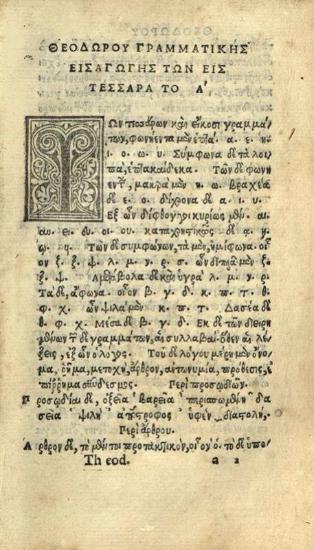 ΘΕΟΔΩΡΟΥ ΓΡΑΜΜΑΤΙΚΗΣ
ΕΙΣΑΓΩΓΗΣ ΤΩΝ ΕΙΣ
ΤΕΣΣΑΡΑ ΤΟ Α΄
ΤΩν τεσσάρων καὶ εἴκοσι γραμμά
των, φωνήεντα μὲν ἑπτά. α. ε. η
ι. ο. ω. υ. Σύμφωνα δὲ τὰ λοι
πά, ἑπτακαίδεκα. Τῶν δὲ φωνη
έντων, μακρὰ μὲν η. ω. Βραχέα
δὲ ε. ο. δίχρονα δὲ α. ι. υ.
Ἐξ ὧν δίφθογγοι κυρίως μὲν. αι.
αυ. ει. ευ. οι. ου. καταχρηστικῶς δὲ ᾳ.
ῃ. ῳ. Τῶν δὲ συμφώνων, τὰ μὲν, ἡμίφωνα. οἷ
ον ζ. ξ. ψ. λ. μ. ν. ρ. σ. ὧν διπλᾶ μὲν
ζ. ξ. ψ. Ἀμετάβολα δὲ καὶ ὑγρά. λ. μ. ν. ρ.
Τὰ δὲ, ἄφωνα. οἷον β. γ. δ. κ. π. τ. θ.
φ. χ. ὧν ψιλὰ μὲν κ. π. τ. Δασέα δὲ
θ. φ. χ. Μέσα δὲ β. γ. δ. Ἐκ δὲ τῶν διειρη
μένων τῶν δὲ γραμμάτων, αἱ συλλαβαί· ὅθεν αἱ λέ
ξεις, ἐξ ὧν ὁ λόγος. Τοῦ δὲ λόγου μέρη μὲν ὄνο
μα, ῥῆμα, μετοχή, ἄρθρον, ἀντωνυμία, πρόθεσις, ἐ
πίρρημα, σύνδεσμος. Περὶ προσῳδιῶν.
Προσῳδίαι δὲ, ὀξεῖα βαρεῖα περισπωμένη δα
σεῖα ψιλὴ ἀπόστροφος ὑφὲν διαστολή.
Περὶ ἄρθρου.
Ἄρθρον δὲ, τὸ μέν τοι προτακτικόν, οἷον ὁ. τὸ δὲ ὑπο/
Theod. a 2